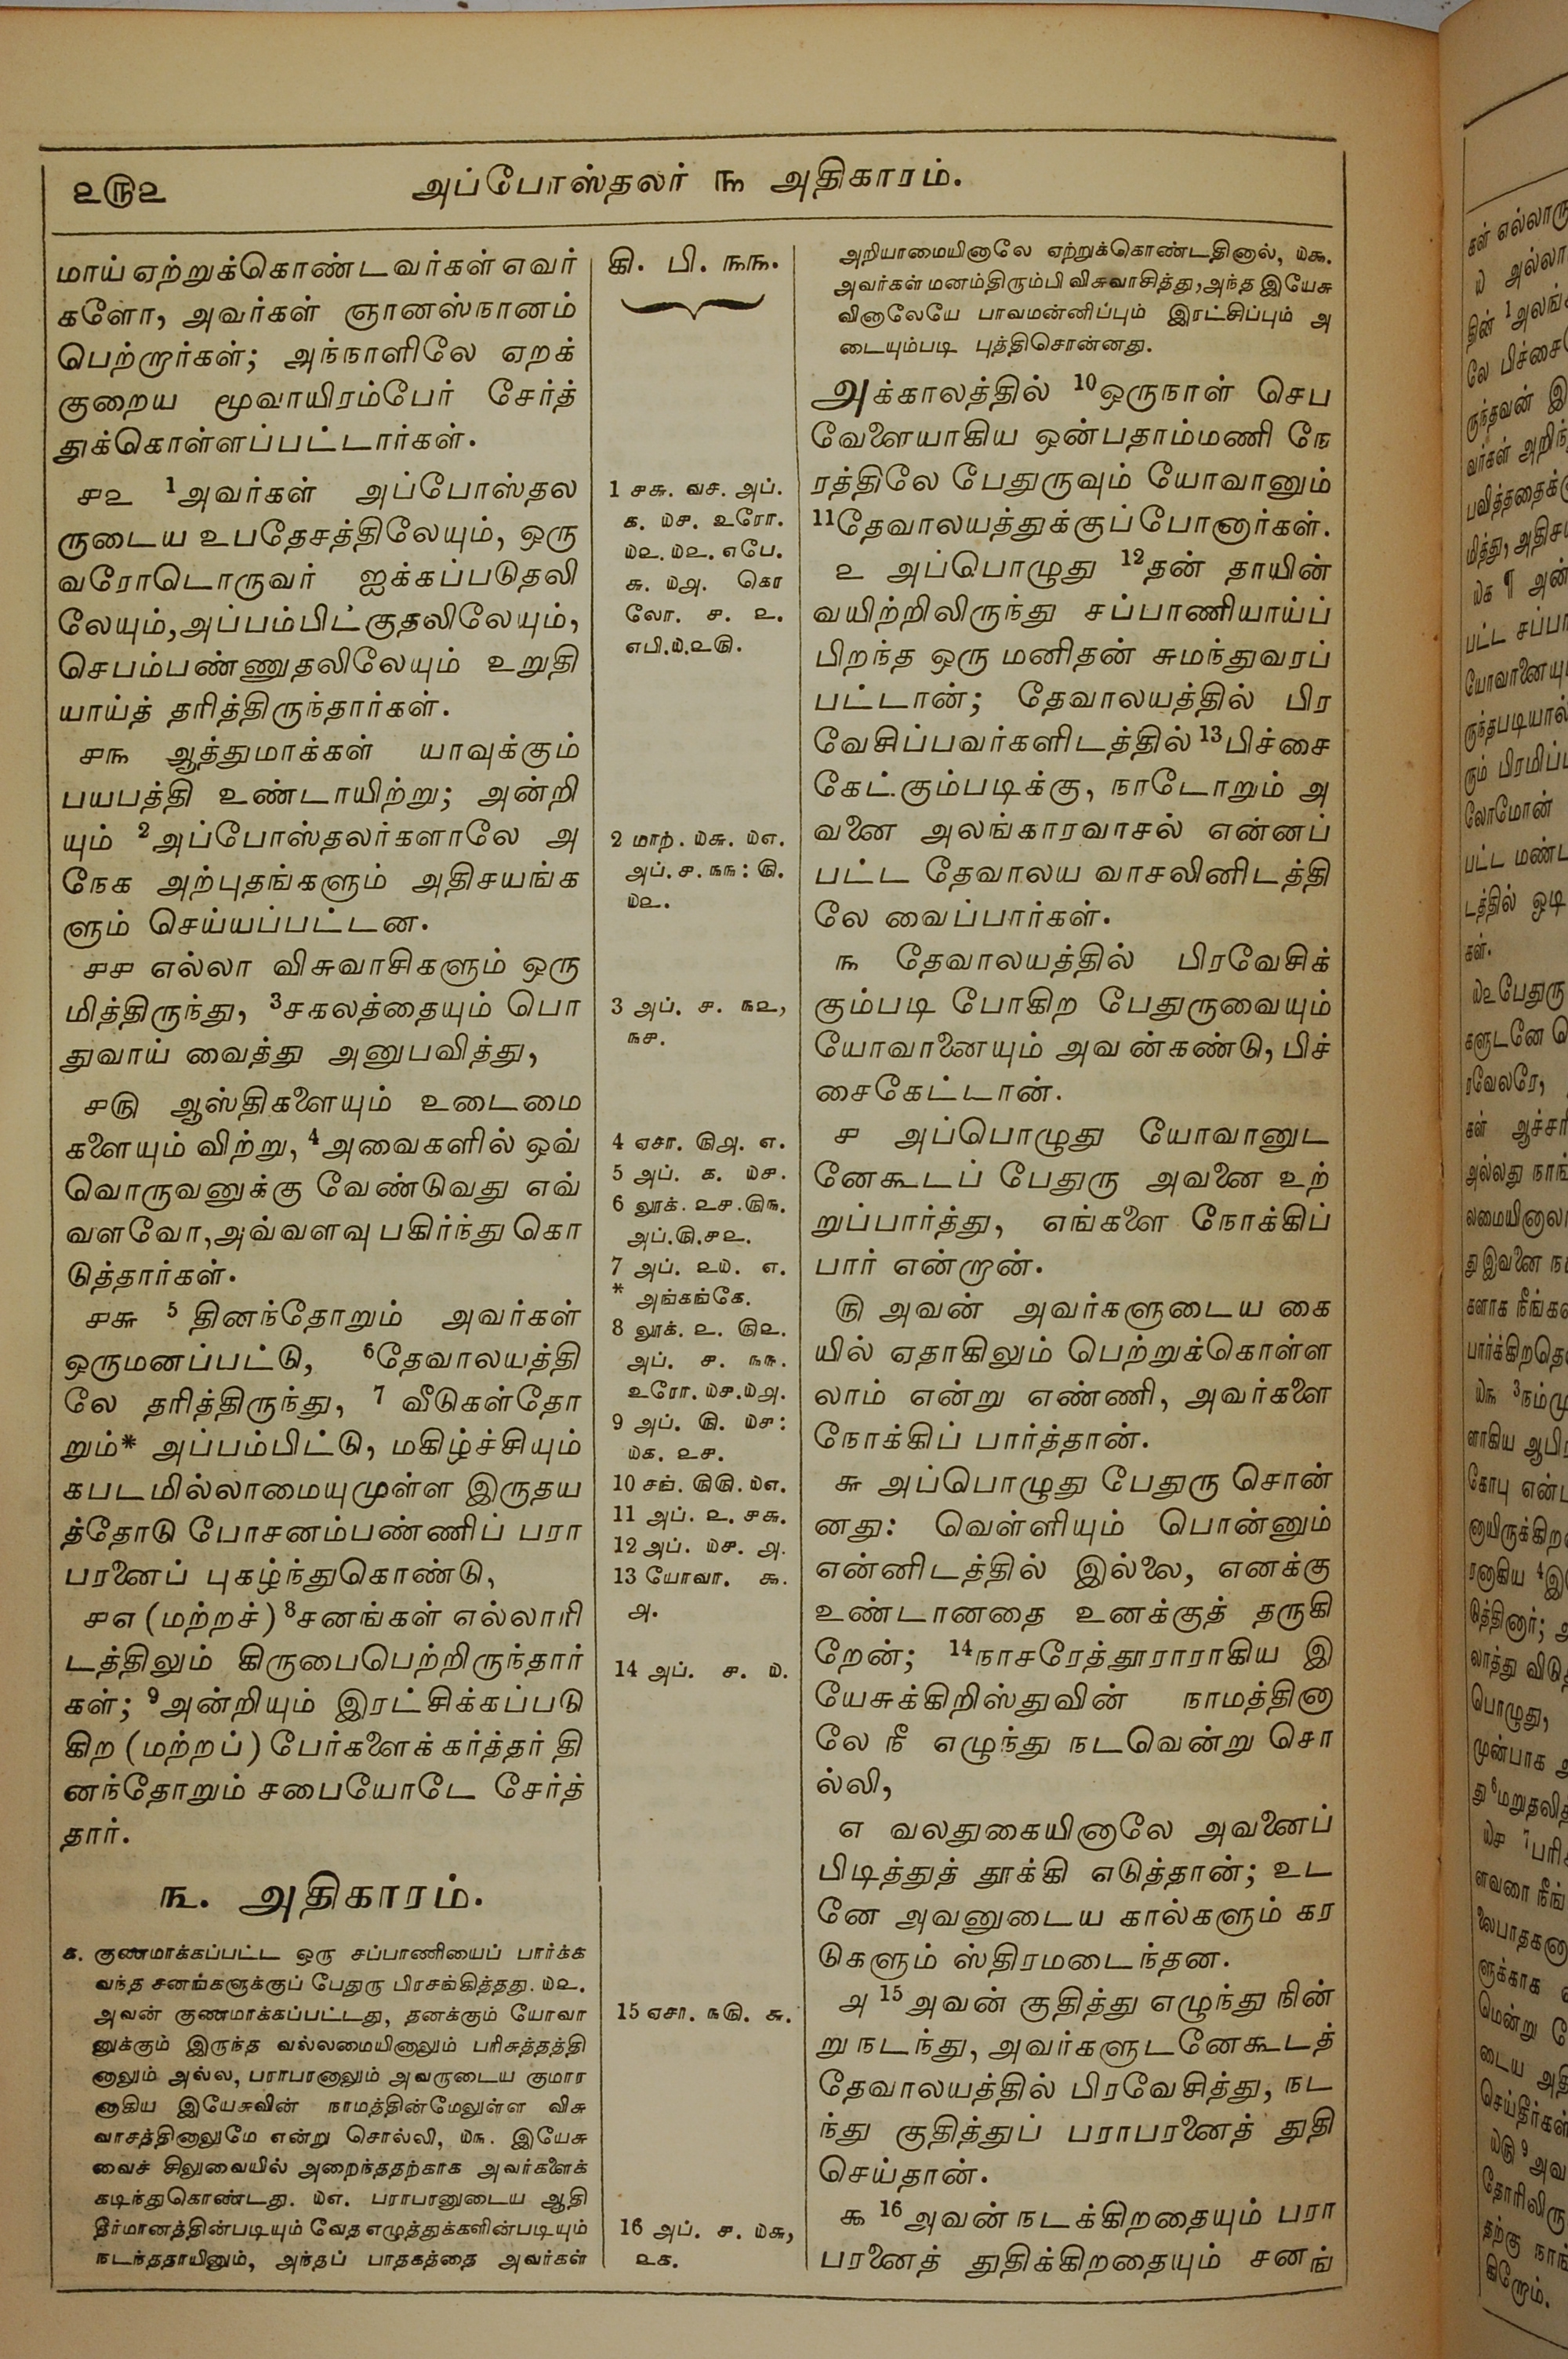 ௨௫௨
அப்போஸ்தலர் ௩ அதிகாரம்.
மாய் ஏற்றுக்கொண்டவர்கள் எவர்
களோ, அவர்கள் ஞானஸ்நானம்
பெற்றார்கள்; அந்நாளிலே ஏறக்
குறைய மூவாயிரம்பேர் சேர்த்
துக்கொள்ளப்பட்டார்கள்.
௪௨ 1அவர்கள் அப்போஸ்தல
ருடைய உபதேசத்திலேயும், ஒரு
வரோடொருவர் ஐக்கப்படுதலி
லேயும், அப்பம்பிட்குதலிலேயும்,
செபம்பண்ணுதலிலேயும் உறுதி
யாய்த் தரித்திருந்தார்கள்.
௪௩ ஆத்துமாக்கள் யாவுக்கும்
பயபத்தி உண்டாயிற்று; அன்றி
யும் 2அப்போஸ்தலர்களாலே அ
நேக அற்புதங்களும் அதிசயங்க
ளும் செய்யப்பட்டன.
௪௪ எல்லா விசுவாசிகளும் ஒரு
மித்திருந்து, 3சகலத்தையும் பொ
துவாய் வைத்து அனுபவித்து,
௪௫ ஆஸ்திகளையும் உடைமை
களையும் விற்று, 4அவைகளில் ஒவ்
வொருவனுக்கு வேண்டுவது எவ்
வளவோ, அவ்வளவு பகிர்ந்து கொ
டுத்தார்கள்.
௪௬ 5 தினந்தோறும் அவர்கள்
ஒருமனப்பட்டு, 6தேவாலயத்தி
லே தரித்திருந்து, 7 வீடுகள்தோ
றும்* அப்பம்பிட்டு, மகிழ்ச்சியும்
கபடமில்லாமையுமுள்ள இருதய
த்தோடு போசனம்பண்ணிப் பரா
பரனைப் புகழ்ந்துகொண்டு,
௪௭ (மற்றச்) 8சனங்கள் எல்லாரி
டத்திலும் கிருபைபெற்றிருந்தார்
கள்; 9அன்றியும் இரட்சிக்கப்படு
கிற (மற்றப்) பேர்களைக் கர்த்தர் தி
னந்தோறும் சபையோடே சேர்த்
தார்.
௩. அதிகாரம்.
௧. குணமாக்கப்பட்ட ஒரு சப்பாணியைப் பார்க்க
வந்த சனங்களுக்குப் பேதுரு பிரசங்கித்தது. ௰௨.
அவன் குணமாக்கப்பட்டது, தனக்கும் யோவா
னுக்கும் இருந்த வல்லமையினாலும் பரிசுத்தத்தி
னாலும் அல்ல, பராபரனாலும் அவருடைய குமார
னாகிய இயேசுவின் நாமத்தின்மேலுள்ள விசு
வாசத்தினாலுமே என்று சொல்லி, ௰௩. இயேசு
வைச் சிலுவையில் அறைந்ததற்காக அவர்களைக்
கடிந்துகொண்டது. ௰௭. பராபரனுடைய ஆதி
தீர்மானத்தின்படியும் வேத எழுத்துக்களின்படியும்
நடந்ததாயினும், அந்தப் பாதகத்தை அவர்கள்
கி. பி. ௩௩.
1 ௪௬. வச. அப்.
௧. ௰௪. உரோ.
௰௨. ௰௨. எபே.
௬. ௰௮. கொ
லோ. ௪. ௨.
எபி.௰.௨௫.
2 மாற். ௰௬. ௰௭.
அப். ௪. ௩௩: ௫.
௰௨.
3 அப். ௪. ௩௨,
௩௪.
4 ஏசா. ௫௮. ௭.
5 அப். ௧. ௰௪.
6 லூக். ௨௪.௫௩.
அப்.௫.௪௨.
7 அப். ௨௰. ௭.
* அங்கங்கே.
8 லூக். ௨. ௫௨.
அப். ௪. ௩௩.
உரோ. ௰௪.௰௮.
9 அப். ௫. ௰௪:
௰௧. ௨௪.
10 சங். ௫௫. ௰௭.
11 அப். ௨. ௪௬.
12 அப். ௰௪. ௮.
13 யோவா. ௯.
௮.
14 அப். ௪. ௰.
15 ஏசா. ௩௫. ௬.
16 அப். ௪. ௰௬,
௨௧.
அறியாமையினாலே ஏற்றுக்கொண்டதினால், ௰௯.
அவர்கள் மனம்திரும்பி விசுவாசித்து, அந்த இயேசு
வினாலேயே பாவமன்னிப்பும் இரட்சிப்பும் அ
டையும்படி புத்திசொன்னது.
அக்காலத்தில் 10ஒருநாள் செப
வேளையாகிய ஒன்பதாம்மணி நே
ரத்திலே பேதுருவும் யோவானும்
11தேவாலயத்துக்குப்போனார்கள்.
௨ அப்பொழுது 12தன் தாயின்
வயிற்றிலிருந்து சப்பாணியாய்ப்
பிறந்த ஒரு மனிதன் சுமந்துவரப்
பட்டான்; தேவாலயத்தில் பிர
வேசிப்பவர்களிடத்தில் 13பிச்சை
கேட்கும்படிக்கு, நாடோறும் அ
வனை அலங்காரவாசல் என்னப்
பட்ட தேவாலய வாசலினிடத்தி
லே வைப்பார்கள்.
௩ தேவாலயத்தில் பிரவேசிக்
கும்படி போகிற பேதுருவையும்
யோவானையும் அவன்கண்டு, பிச்
சைகேட்டான்.
௪ அப்பொழுது யோவானுட
னேகூடப் பேதுரு அவனை உற்
றுப்பார்த்து, எங்களை நோக்கிப்
பார் என்றான்.
௫ அவன் அவர்களுடைய கை
யில் ஏதாகிலும் பெற்றுக்கொள்ள
லாம் என்று எண்ணி, அவர்களை
நோக்கிப் பார்த்தான்.
௬ அப்பொழுது பேதுரு சொன்
னது: வெள்ளியும் பொன்னும்
என்னிடத்தில் இல்லை, எனக்கு
உண்டானதை உனக்குத் தருகி
றேன்; 14நாசரேத்தூராராகிய இ
யேசுக்கிறிஸ்துவின் நாமத்தினா
லே நீ எழுந்து நடவென்று சொ
ல்லி,
௭ வலதுகையினாலே அவனைப்
பிடித்துத் தூக்கி எடுத்தான்; உட
னே அவனுடைய கால்களும் கர
டுகளும் ஸ்திரமடைந்தன.
௮ 15அவன் குதித்து எழுந்து நின்
று நடந்து, அவர்களுடனேகூடத்
தேவாலயத்தில் பிரவேசித்து, நட
ந்து குதித்துப் பராபரனைத் துதி
செய்தான்.
௯ 16அவன் நடக்கிறதையும் பரா
பரனைத் துதிக்கிறதையும் சனங்